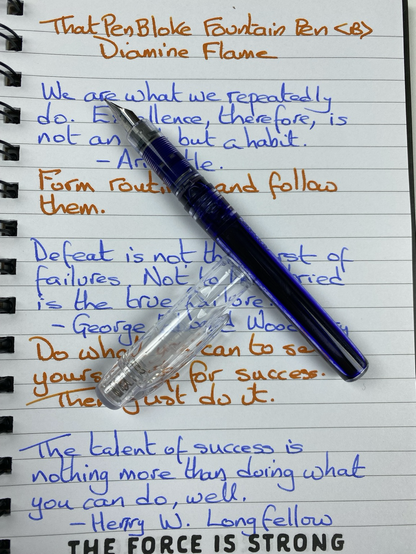 That Pen Bloke Fountain Pen <B>
Diamine Flame
We are what we repeatedly
do. Excellence, therefore, is
not an but a habit.
- Aristotle.
Form routines and follow
them.
Defeat is not the worst of
failures. Not to have tried
is the true failure.
- George Edward Woodberry
Do what you can to set
yourself up for success.
Then just do it.
The talent of success is
nothing more than doing what
you can do, well.
- Henry W. Longfellow
THE FORCE IS STRONG